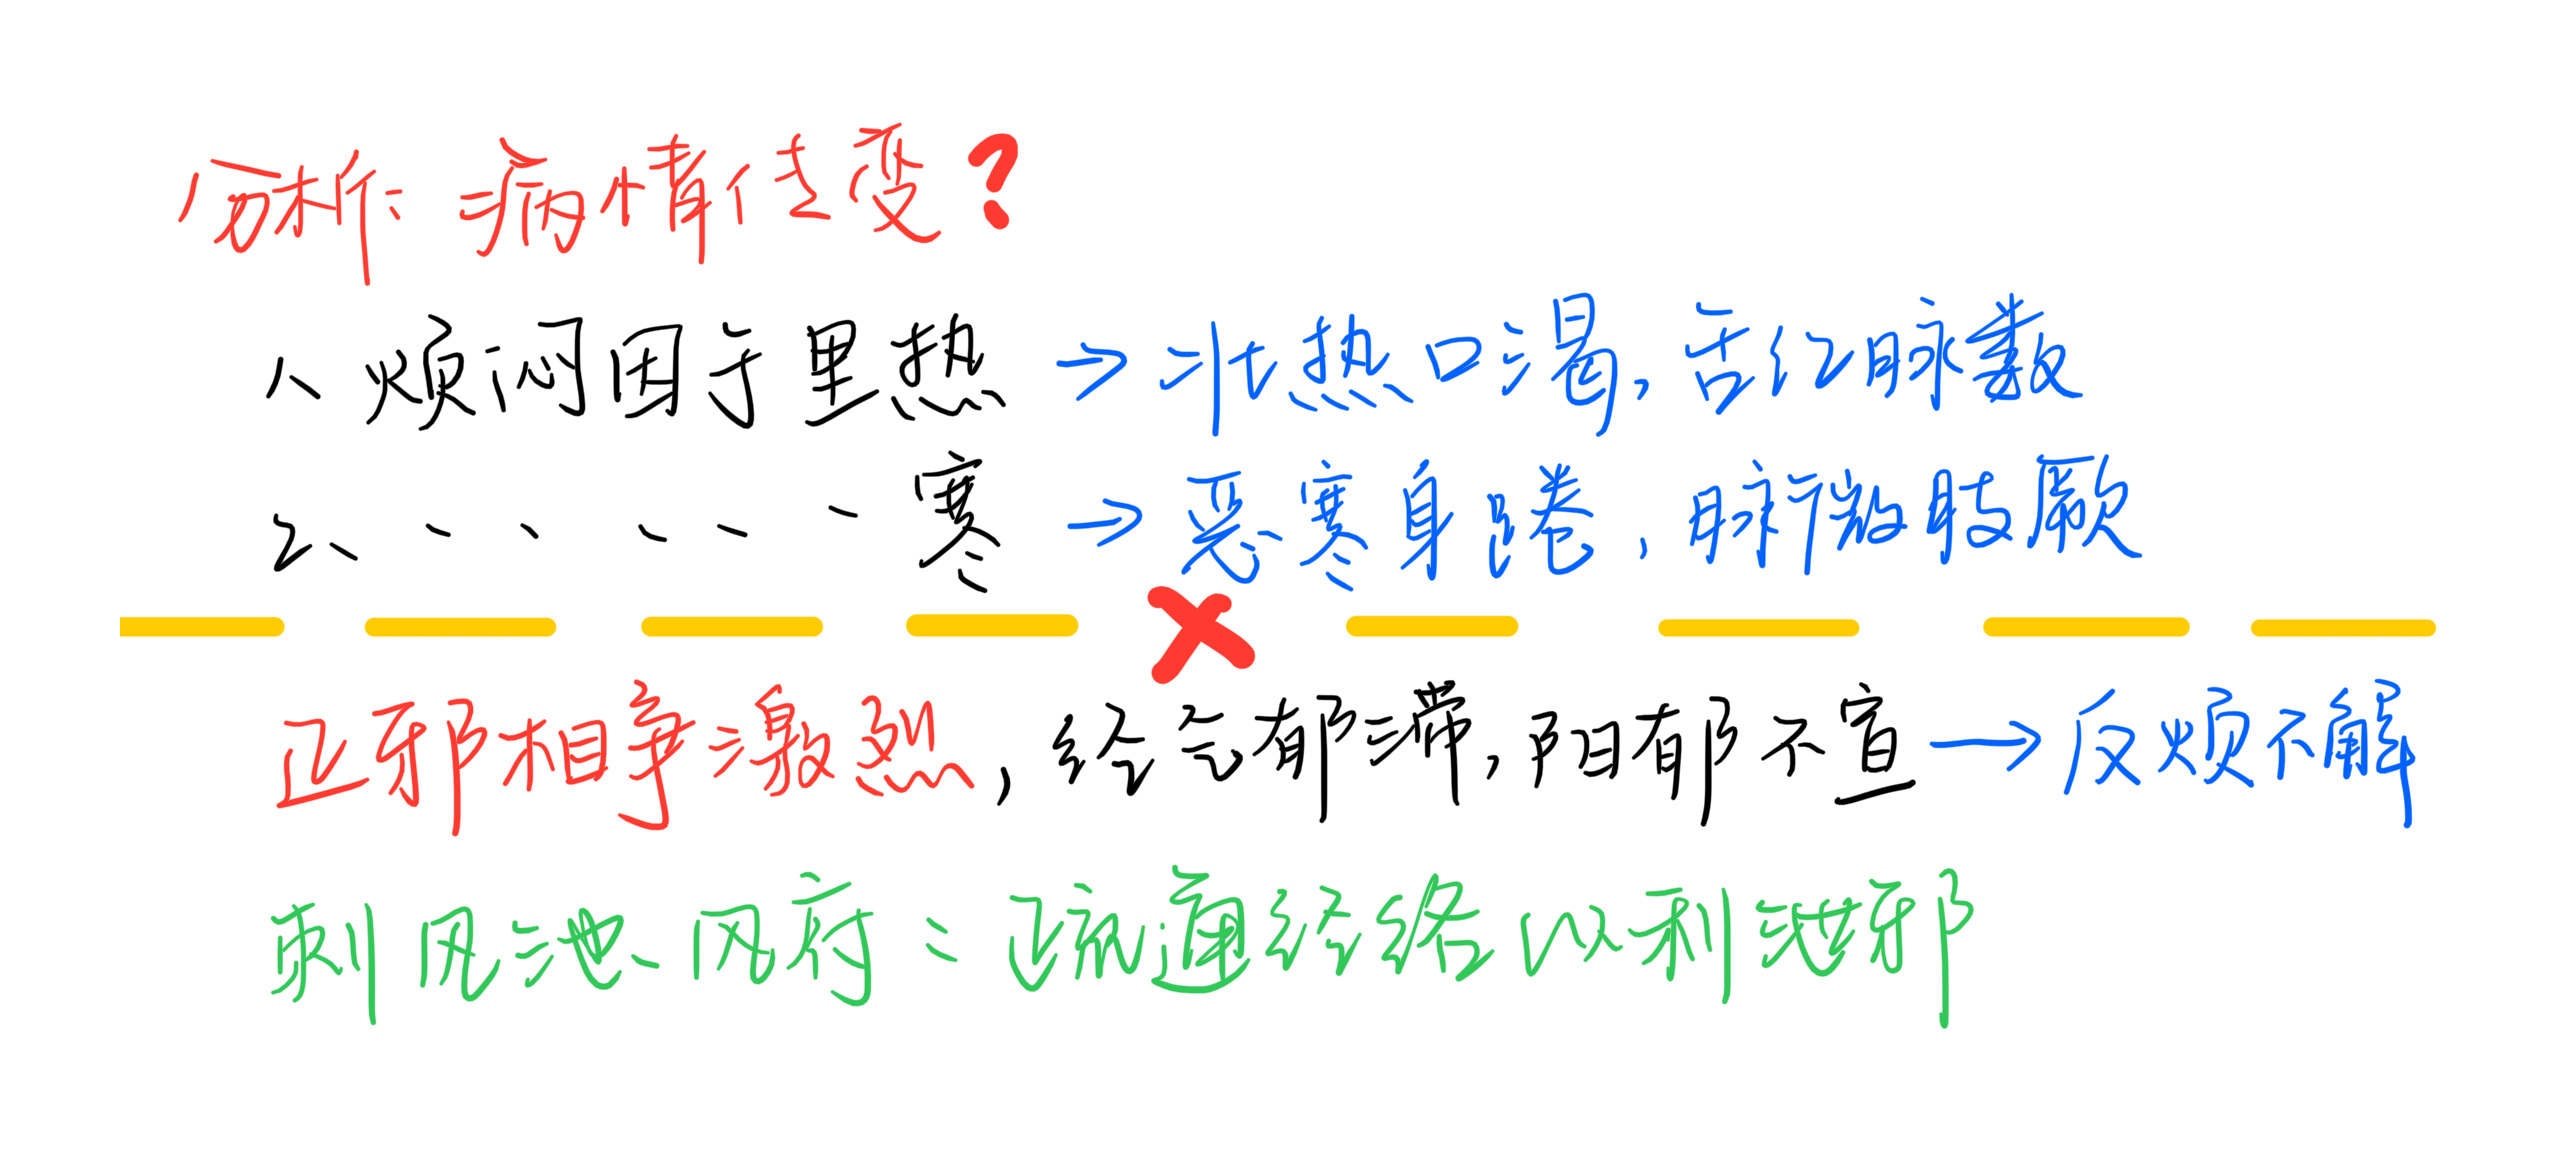 分析：病情传变？
1、烦闷因于里热→壮热口渴,舌红脉数
2、······寒→恶寒身踡,脉微肢厥
正邪相争激烈,经气郁滞,阳郁不宣→反烦不解
刺风池、风府：疏通经络以利泄邪